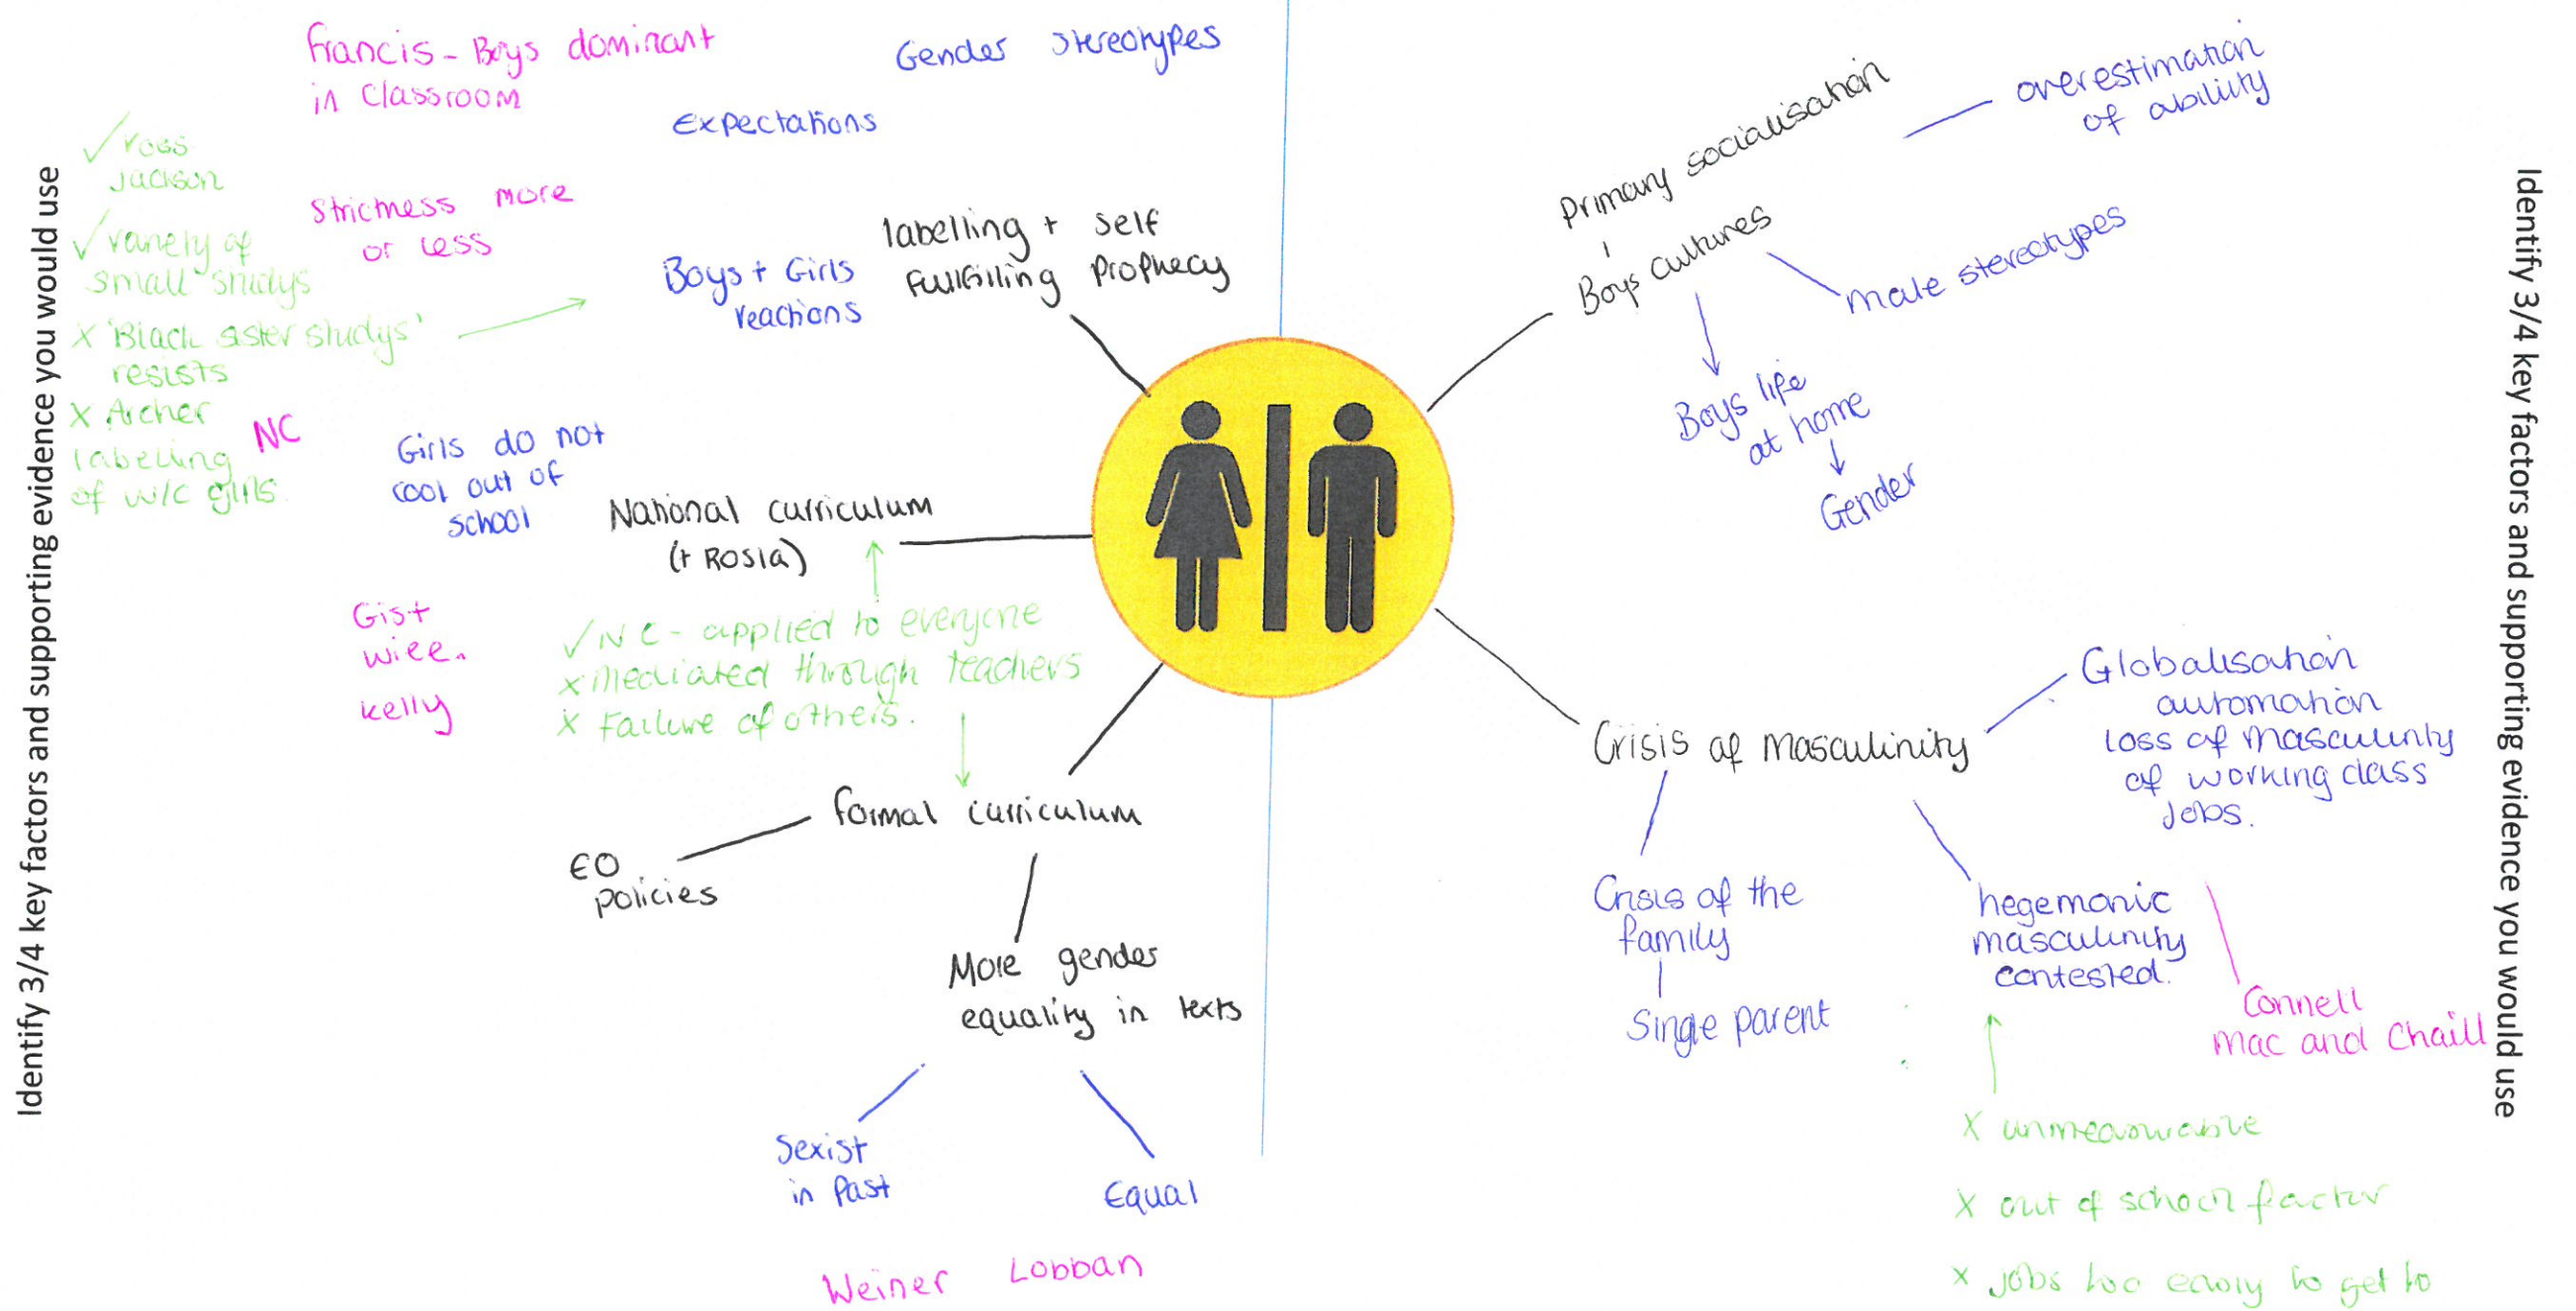 Identify 3/4 key factors and supporting evidence you would use
Francis - Boys dominant
in Classroom
Gender Stereotypes
Expectations
✓ Ross
Jackson
Strictness more
or less
✓ variety of
small studys
X 'Black sister studys'
resists
X Archer
labelling
of w/c girls.
Boys + Girls
reactions
labelling + self
fulfilling Prophecy
NC
Girls do not
cool out of
school
National curriculum
(+ ROSLA)
Gist
wise.
kelly
✓ NC - applied to everyone
x mediated through teachers
X Failure of others.
formal curriculum
EO
policies
More gender
equality in texts
Sexist
in Past
Equal
Weiner Lobban
Primary socialisation
Boys cultures
overestimation
of ability
male stereotypes
Boys life
at home
Gender
Crisis of masculinity
Globalisation
automation
loss of masculinty
of working class
jobs.
Crisis of the
family
Single parent
hegemonic
masculinity
contested.
Connell
Mac and Chaill
X unmeasurable
X out of school factor
X jobs too early to get to
Identify 3/4 key factors and supporting evidence you would use